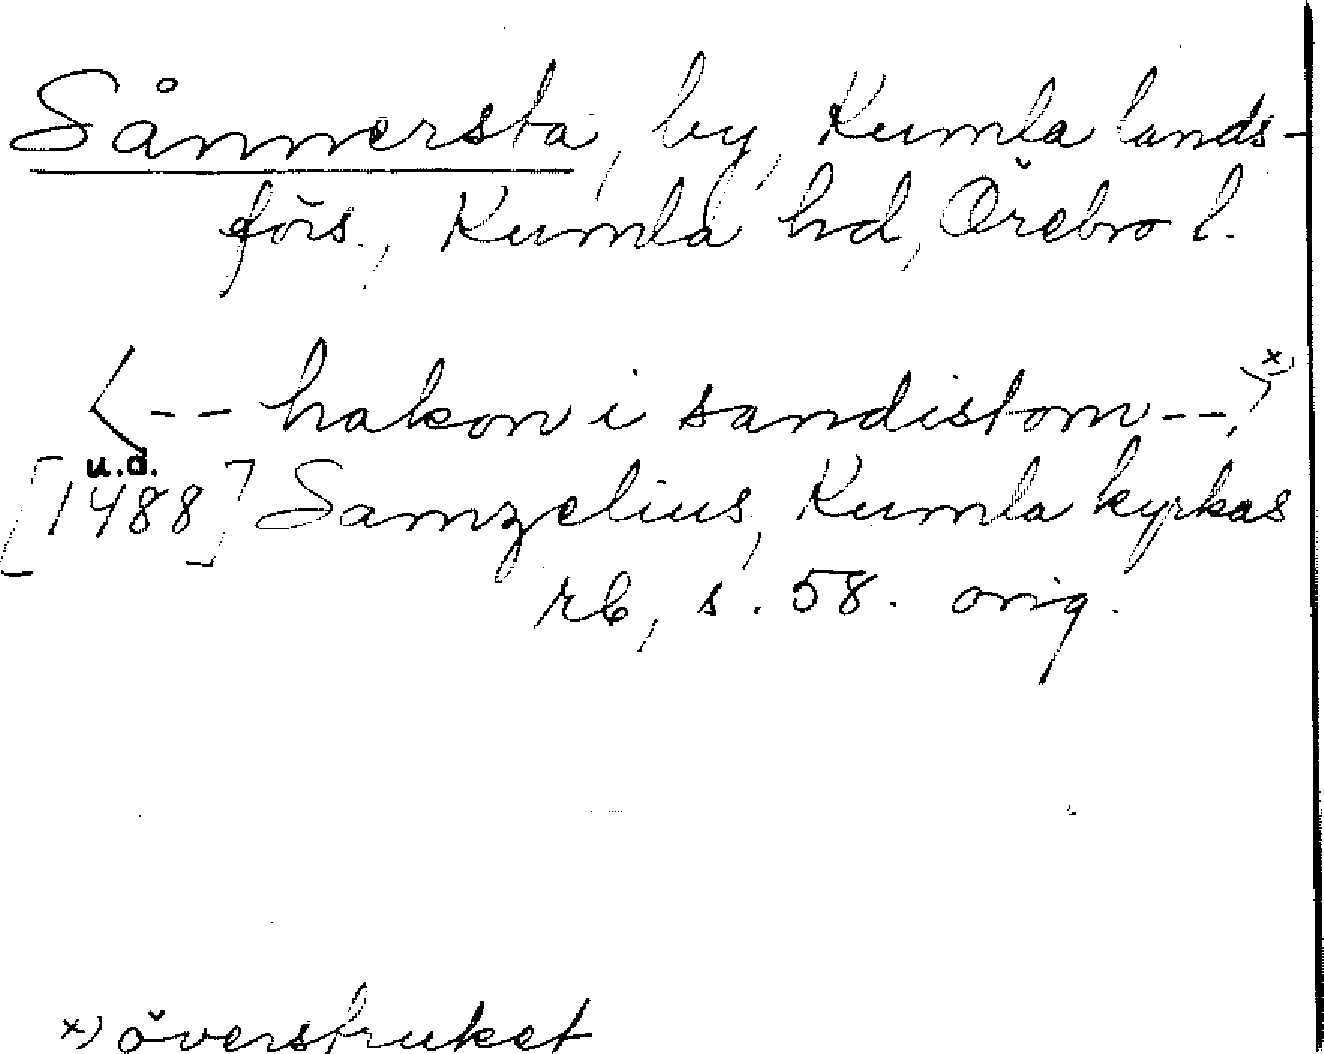 Sånnersta, by, Kumla lands-
förs., Kumla hd, Örebro l.
<-- hakon i sandistom -->x)
u.å.
[1488] Samzelius, Kumla kyrkas
rb, s. 58. orig.
x) överstruket